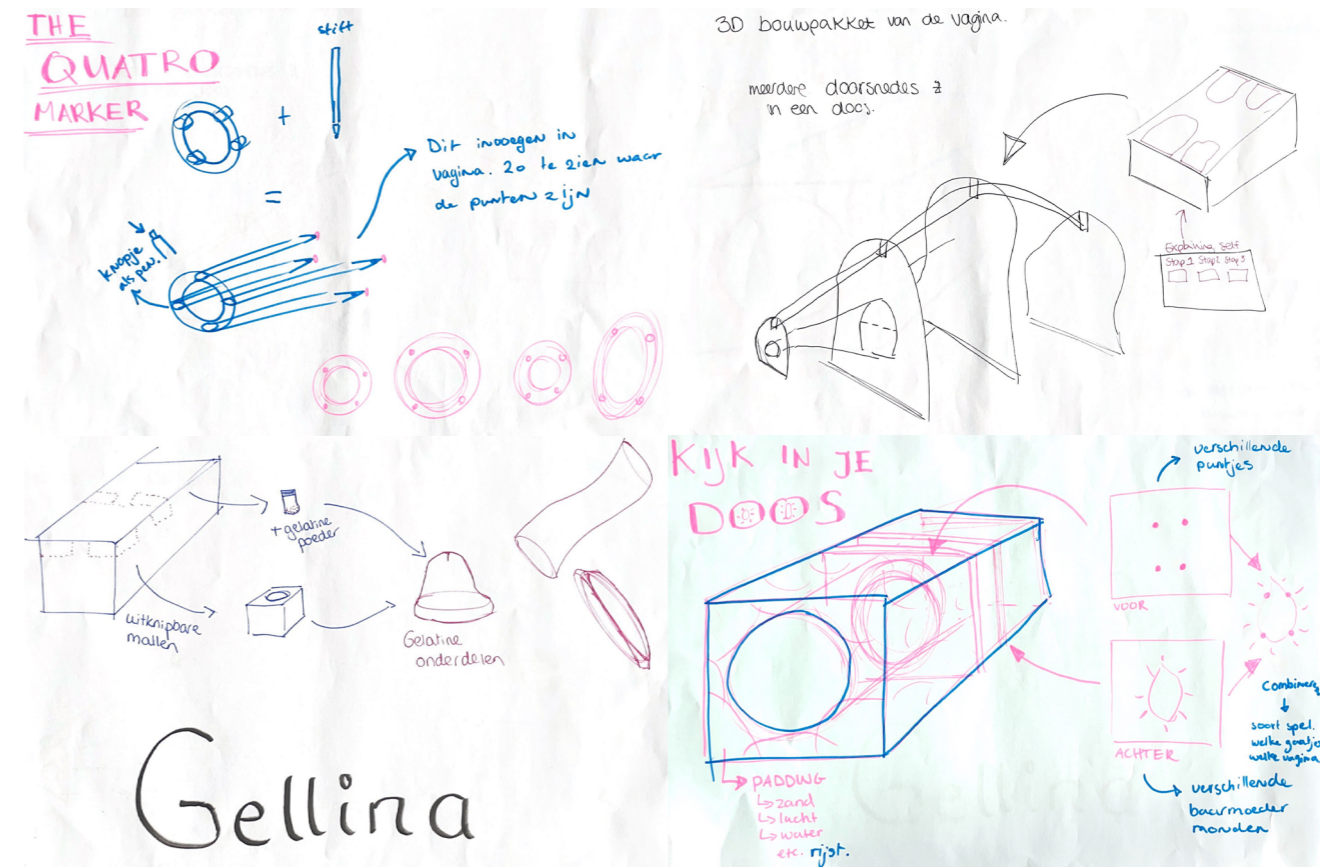 THE
QUATRO
MARKER
stift
+
=
Dit invoegen in
vagina. Zo te zien waar
de punten zijn
knopje
als pen.
3D bouwpakket van de vagina.
meerdere doorsnedes
in een doos.
Explaining self
Stap 1 Stap 2 Stap 3
+ gelatine
poeder
uitknipbare
mallen
Gelatine
onderdelen
Gellina
KIJK IN JE
DOOS
verschillende
puntjes
VOOR
ACHTER
Combineren
soort spel.
welke gaatjes
welke vagina
verschillende
baarmoeder
monden
PADDING
↳ zand
↳ lucht
↳ water
etc. rijst.